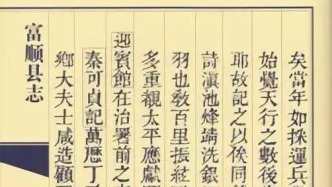 矣當年如採運兵
始覺天行之數後
耶故記之以俟同
詩滇池烽靖洗銀
羽也敎百里張紘
多重觀太平應獻
迎賓館在治署前之
秦可貞記萬歷丁
鄕大夫士咸造顧
富顺县志